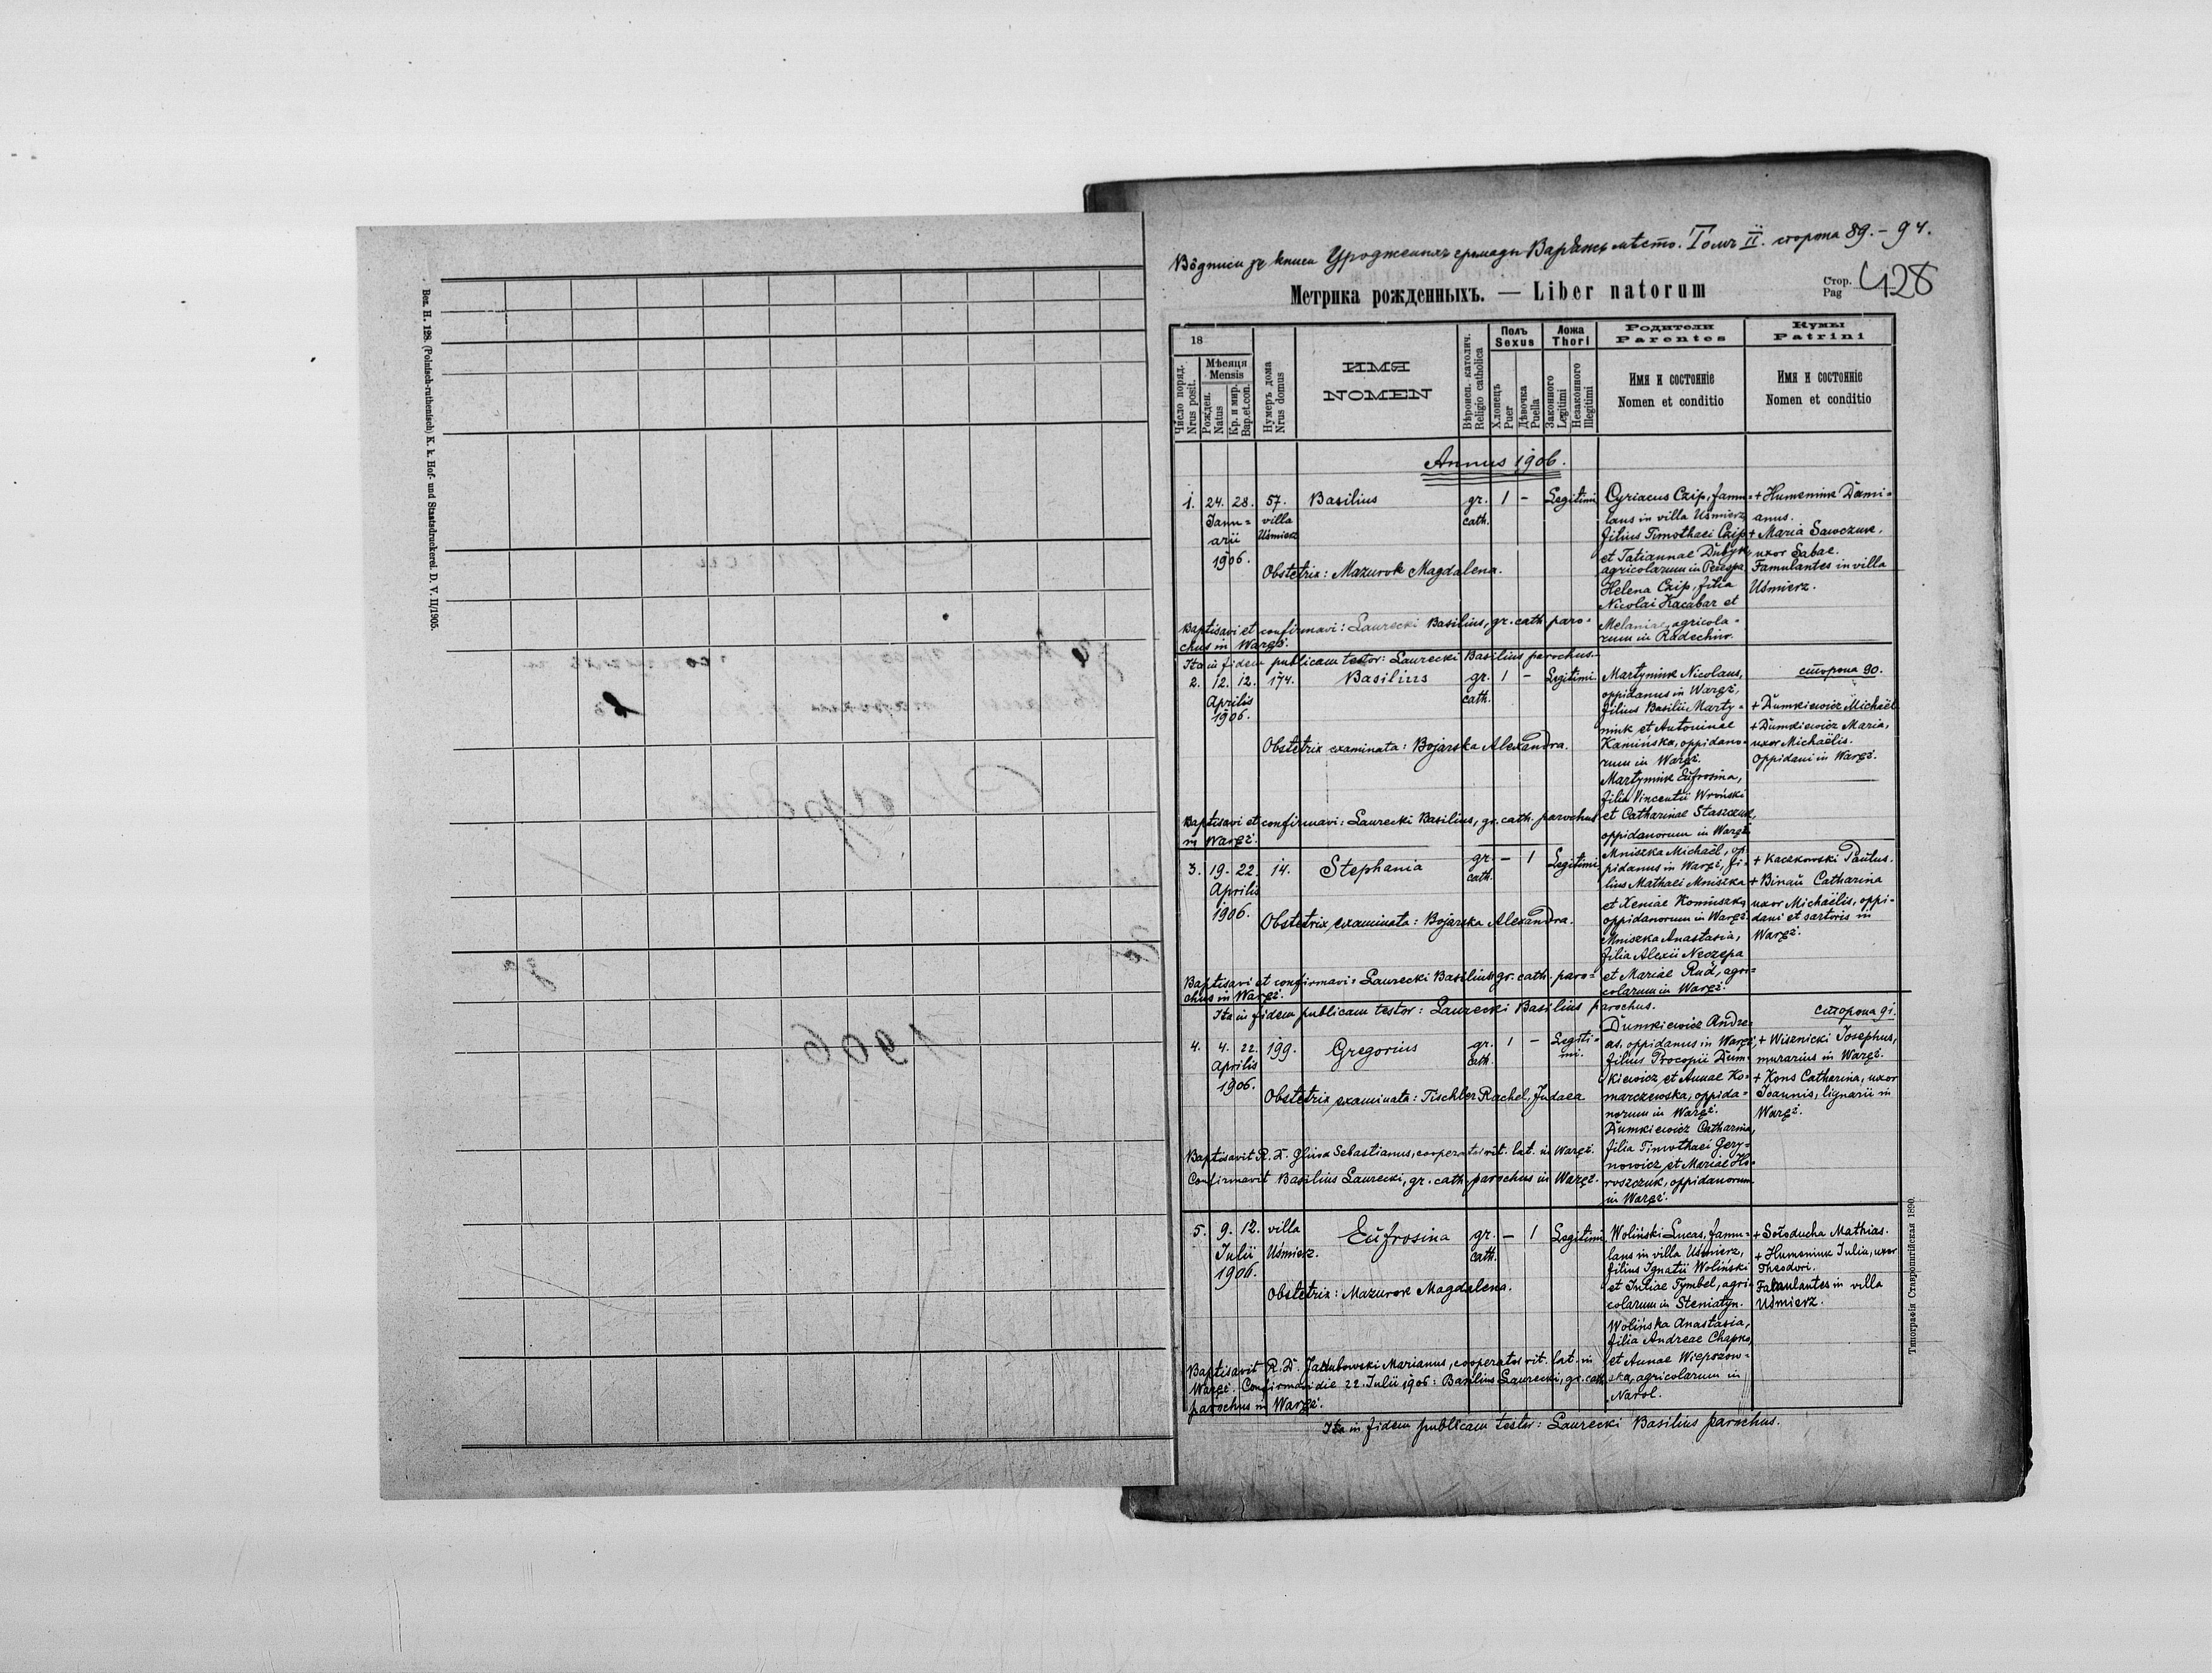 Bez. H. 128. (Polnisch-ruthenisch) K. k. Hof- und Staatsdruckerei. D. V. II/1905.
1906.
Вôдписи зъ книги Урождженыхъ громады Варяжъ мѣсто. Томъ II. сторона 89.-94.
Метрика рожденныхъ. — Liber natorum
Стор.
Pag 428
18
Число поряд.
Nrus posit.
Мѣсяця
Mensis
Рожден.
Natus
Кр. и мир.
Bap.et.con.
Нумеръ дома
Nrus domus
ИМЯ
NOMEN
Вѣроисп. католич.
Religio catholica
Полъ
Sexus
Хлопецъ
Puer
Дѣвочка
Puella
Ложа
Thori
Законного
Legitimi
Незаконного
Illegitimi
Родители
Parentes
Имя и состоянiе
Nomen et conditio
Кумы
Patrini
Имя и состоянiе
Nomen et conditio
Annus 1906.
1. 24. 28. 57. Basilius gr. 1 - Legitimi
Janu=
arii
1906.
villa
Uśmierz
cath.
Obstetrix: Mazurok Magdalena.
Cyriacus Czip, famu=
lans in villa Uśmierz,
filius Timothaei Czip
et Tatiannae Dubyk,
agricolarum in Perespa
Helena Czip, filia
Nicolai Kacabar et
Melaniae, agricola=
rum in Radechów.
+ Humeniuk Dami=
anus.
+ Maria Sawczuk,
uxor Sabae.
Famulantes in villa
Uśmierz.
Baptisavi et confirmavi: Laurecki Basilius, gr. cath. paro=
chus in Waręż.
Ita in fidem publicam testor: Laurecki Basilius parochus.
2. 12. 12. 174. Basilius gr. 1 - Legitimi.
Aprilis
1906.
cath.
Obstetrix examinata: Bojarska Alexandra.
Martyniuk Nicolaus,
oppidanus in Waręż,
filius Basilii Marty=
niuk et Antoninae
Kamińska, oppidano=
rum in Waręż.
Martyniuk Eufrosina,
filia Vincentii Wroński
et Catharinae Staszczuk,
oppidanorum in Waręż.
сторона 90.
+ Dumkiewicz Michaël
+ Dumkiewicz Maria,
uxor Michaëlis.
Oppidani in Waręż.
Baptisavi et confirmavi: Laurecki Basilius, gr. cath. parochus
in Waręż.
3. 19. 22. 14. Stephania gr. - 1 Legitimi
Aprilis
1906.
cath.
Obstetrix examinata: Bojarska Alexandra.
Mniszka Michaël, op=
pidanus in Waręż, fi=
lius Mathaei Mniszka
et Xeniae Komiszka,
oppidanorum in Waręż.
Mniszka Anastasia,
filia Alexii Neczepa
et Mariae Rud, agri=
colarum in Waręż.
+ Kaczkowski Paulus.
+ Binau Catharina
uxor Michaëlis, oppi=
dani et sartoris in
Waręż.
Baptisavi et confirmavi: Laurecki Basilius gr. cath. paro=
chus in Waręż.
Ita in fidem publicam testor: Laurecki Basilius parochus.
сторона 91.
4. 4. 22. 199. Gregorius gr. 1 - Legiti=
mi.
Aprilis
1906.
cath.
Obstetrix examinata: Tischler Rachel, Judaea
Dumkiewicz Andre=
as, oppidanus in Waręż,
filius Procopii Dum=
kiewicz et Annae Ko=
marczewska, oppida=
norum in Waręż.
Dumkiewicz Catharina,
filia Timothaei Gery=
nowicz et Mariae Ho=
roszczuk, oppidanorum
in Waręż.
+ Wisznicki Josephus,
murarius in Waręż.
+ Kons Catharina, uxor
Joannis, lignarii in
Waręż.
Baptisavit R. D. Gliwa Sebastianus, cooperator rit. lat. in Waręż.
Confirmavit Basilius Laurecki, gr. cath. parochus in Waręż.
5. 9. 12. villa Eufrosina gr. - 1 Legitimi
Julii
1906.
Uśmierz.
cath.
Obstetrix: Mazurok Magdalena.
Woliński Lucas, famu=
lans in villa Uśmierz,
filius Ignatii Woliński
et Juliae Tymbel, agri=
colarum in Steniatyn.
Wolińska Anastasia,
filia Andreae Chapko,
et Annae Wieprzow=
ska, agricolarum in
Narol.
+ Sołoducha Mathias.
+ Humeniuk Julia, uxor
Theodori.
Famulantes in villa
Uśmierz.
Baptisavit R. D. Jakubowski Marianus, cooperator rit. lat. in
Waręż. Confirmavi die 22. Julii 1906: Basilius Laurecki, gr. cath.
parochus in Waręż.
Ita in fidem publicam testor: Laurecki Basilius parochus.
Типографія Ставропигійская 1890.